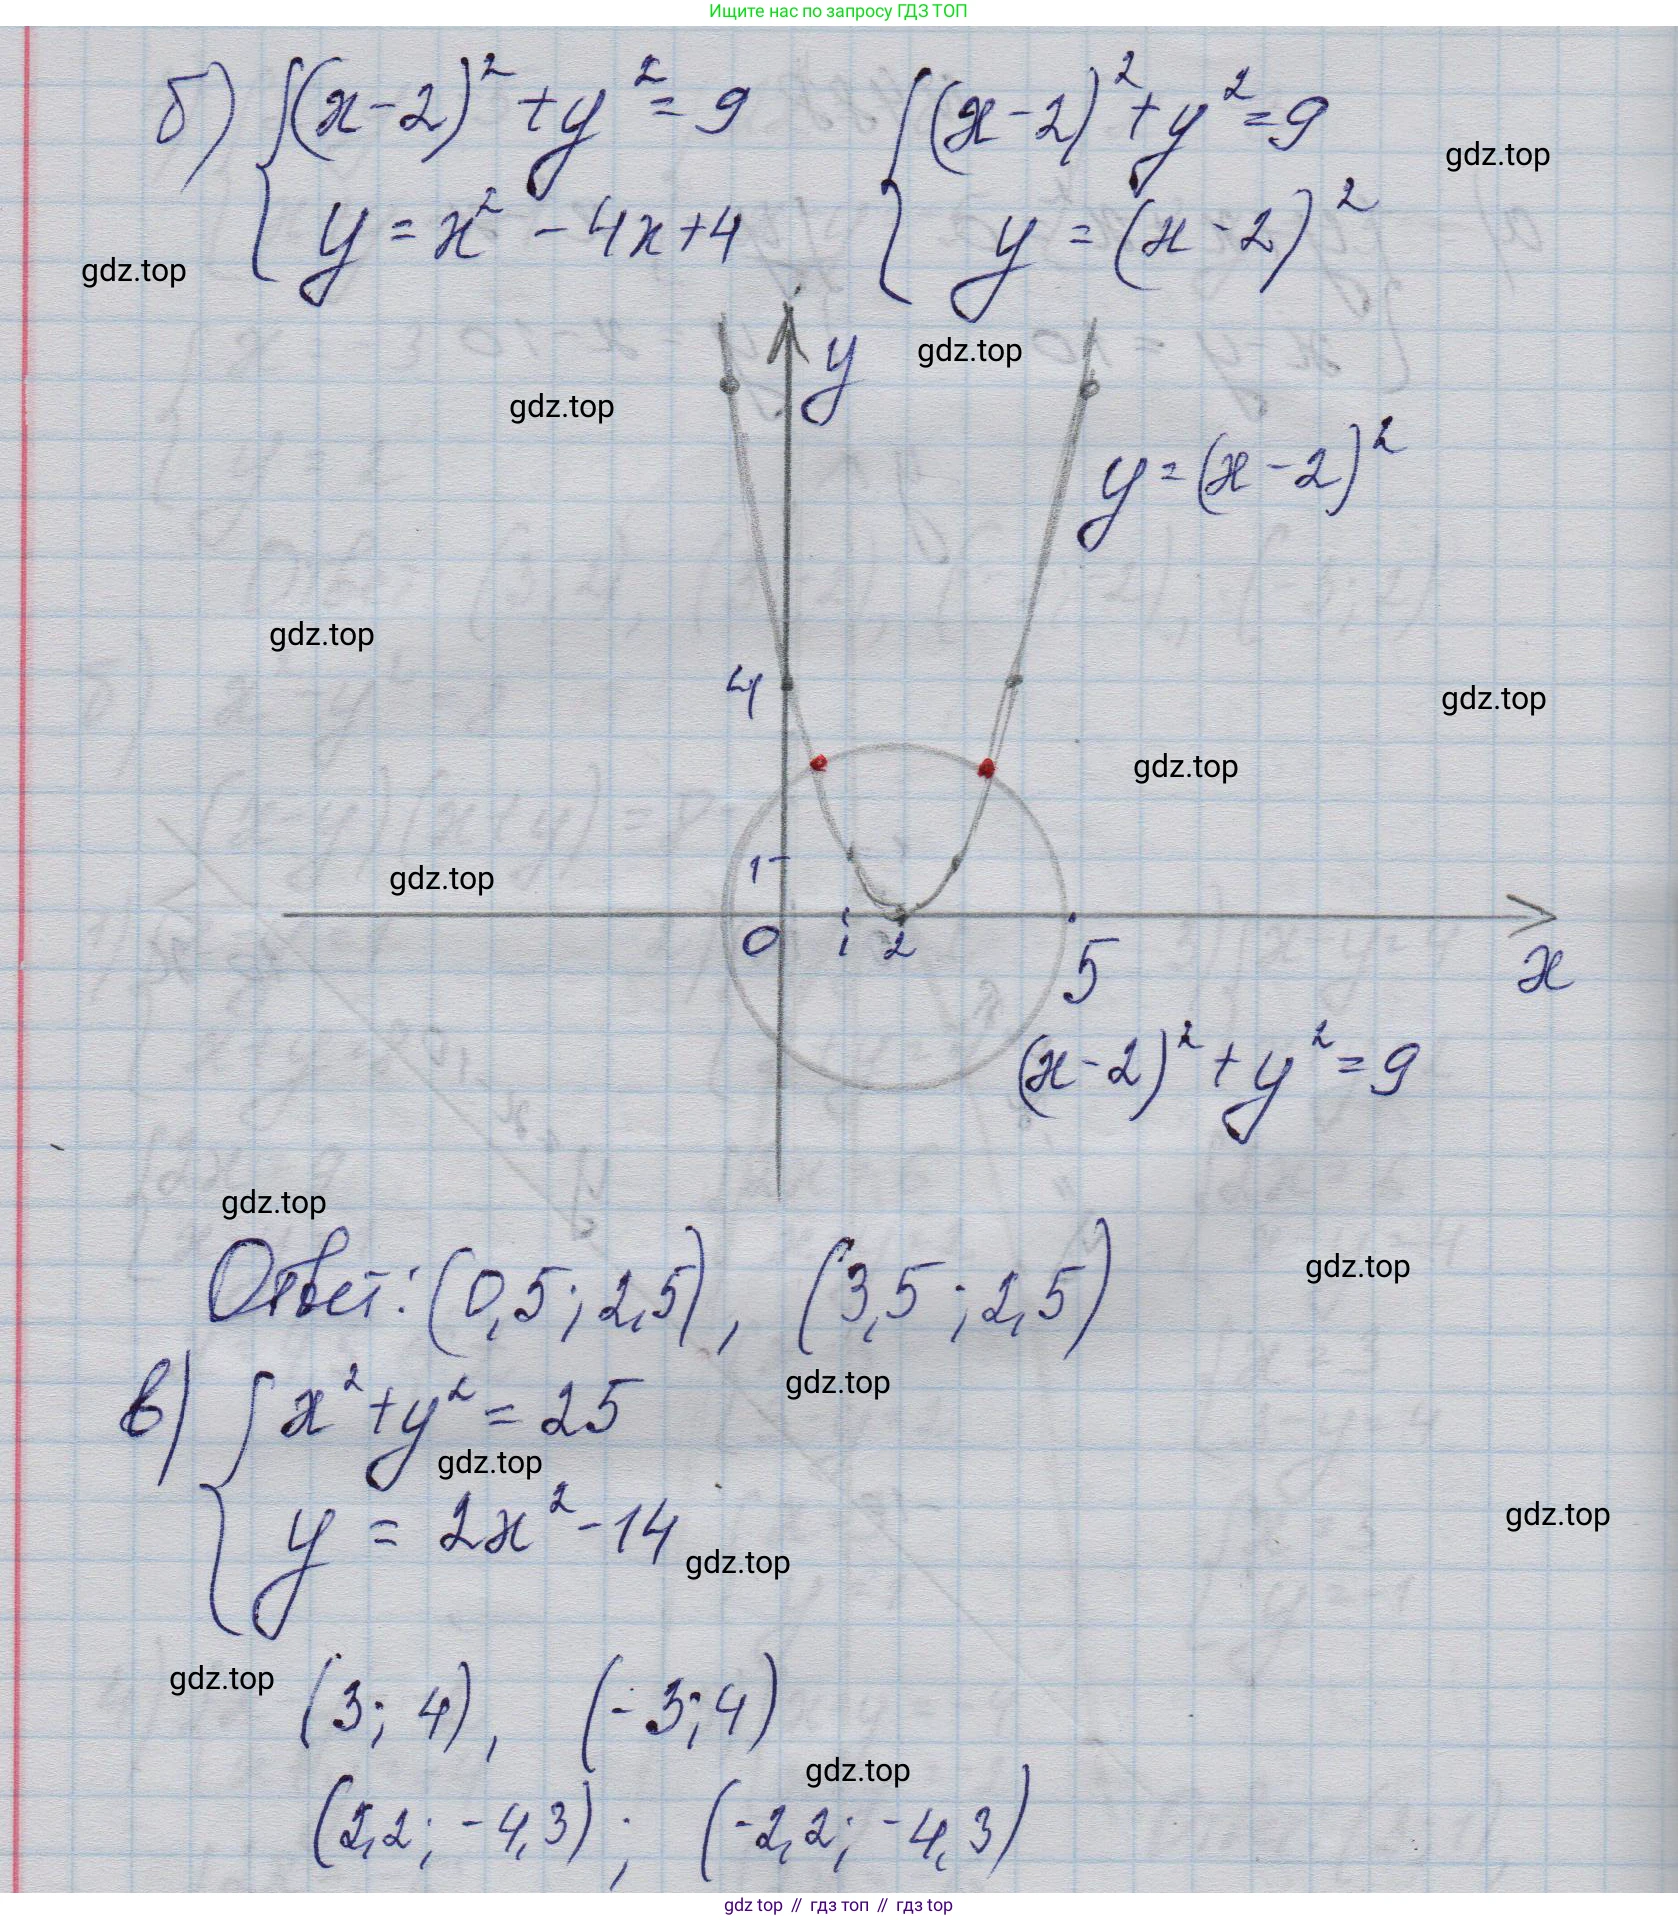 Ищите нас по запросу ГДЗ ТОП
б) { (x-2)² + y² = 9 { (x-2)² + y² = 9
gdz.top
y = x² - 4x + 4 y = (x-2)²
gdz.top
y
gdz.top
gdz.top
y = (x-2)²
gdz.top
4
gdz.top
gdz.top
1
gdz.top
0 1 2 5 x
(x-2)² + y² = 9
gdz.top
Ответ: (0,5; 2,5), (3,5; 2,5)
gdz.top
gdz.top
в) { x² + y² = 25
gdz.top
y = 2x² - 14
gdz.top
gdz.top
gdz.top
(3; 4), (-3; 4)
gdz.top
(2,2; -4,3); (-2,2; -4,3)
gdz top // гдз топ // гдз top